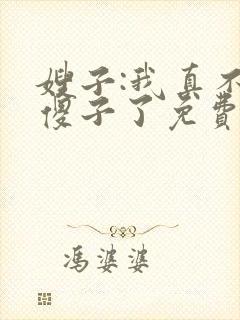 嫂子:我真不
傻子了免费
冯婆婆